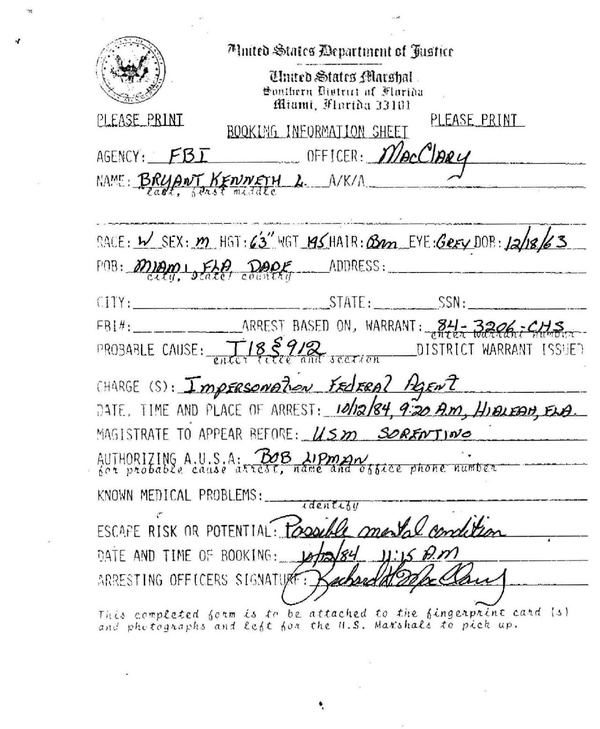 United States Department of Justice
United States Marshal
Southern District of Florida
Miami, Florida 33101
PLEASE PRINT PLEASE PRINT
BOOKING INFORMATION SHEET
AGENCY: FBI OFFICER: MacClary
NAME: BRYANT KENNETH L. A/K/A
last, first middle
RACE: W SEX: M HGT: 6'3" WGT 195 HAIR: Brn EYE: Grey DOB: 12/18/63
POB: MIAMI, FLA DADE ADDRESS:
city, State/ country
CITY: STATE: SSN:
FBI#: ARREST BASED ON, WARRANT: 84-3206-CHS
enter warrant number
PROBABLE CAUSE: T18 § 912 DISTRICT WARRANT ISSUED
enter title and section
CHARGE (S): Impersonation Federal Agent
DATE, TIME AND PLACE OF ARREST: 10/12/84, 9:20 AM, HIALEAH, FLA.
MAGISTRATE TO APPEAR BEFORE: USM SORENTINO
AUTHORIZING A.U.S.A: BOB LIPMAN
for probable cause arrest, name and office phone number
KNOWN MEDICAL PROBLEMS:
identify
ESCAPE RISK OR POTENTIAL: Possible mental condition
DATE AND TIME OF BOOKING: 10/12/84 11:15 AM
ARRESTING OFFICERS SIGNATURE: Richard H MacClary
This completed form is to be attached to the fingerprint card (s)
and photographs and left for the U.S. Marshals to pick up.